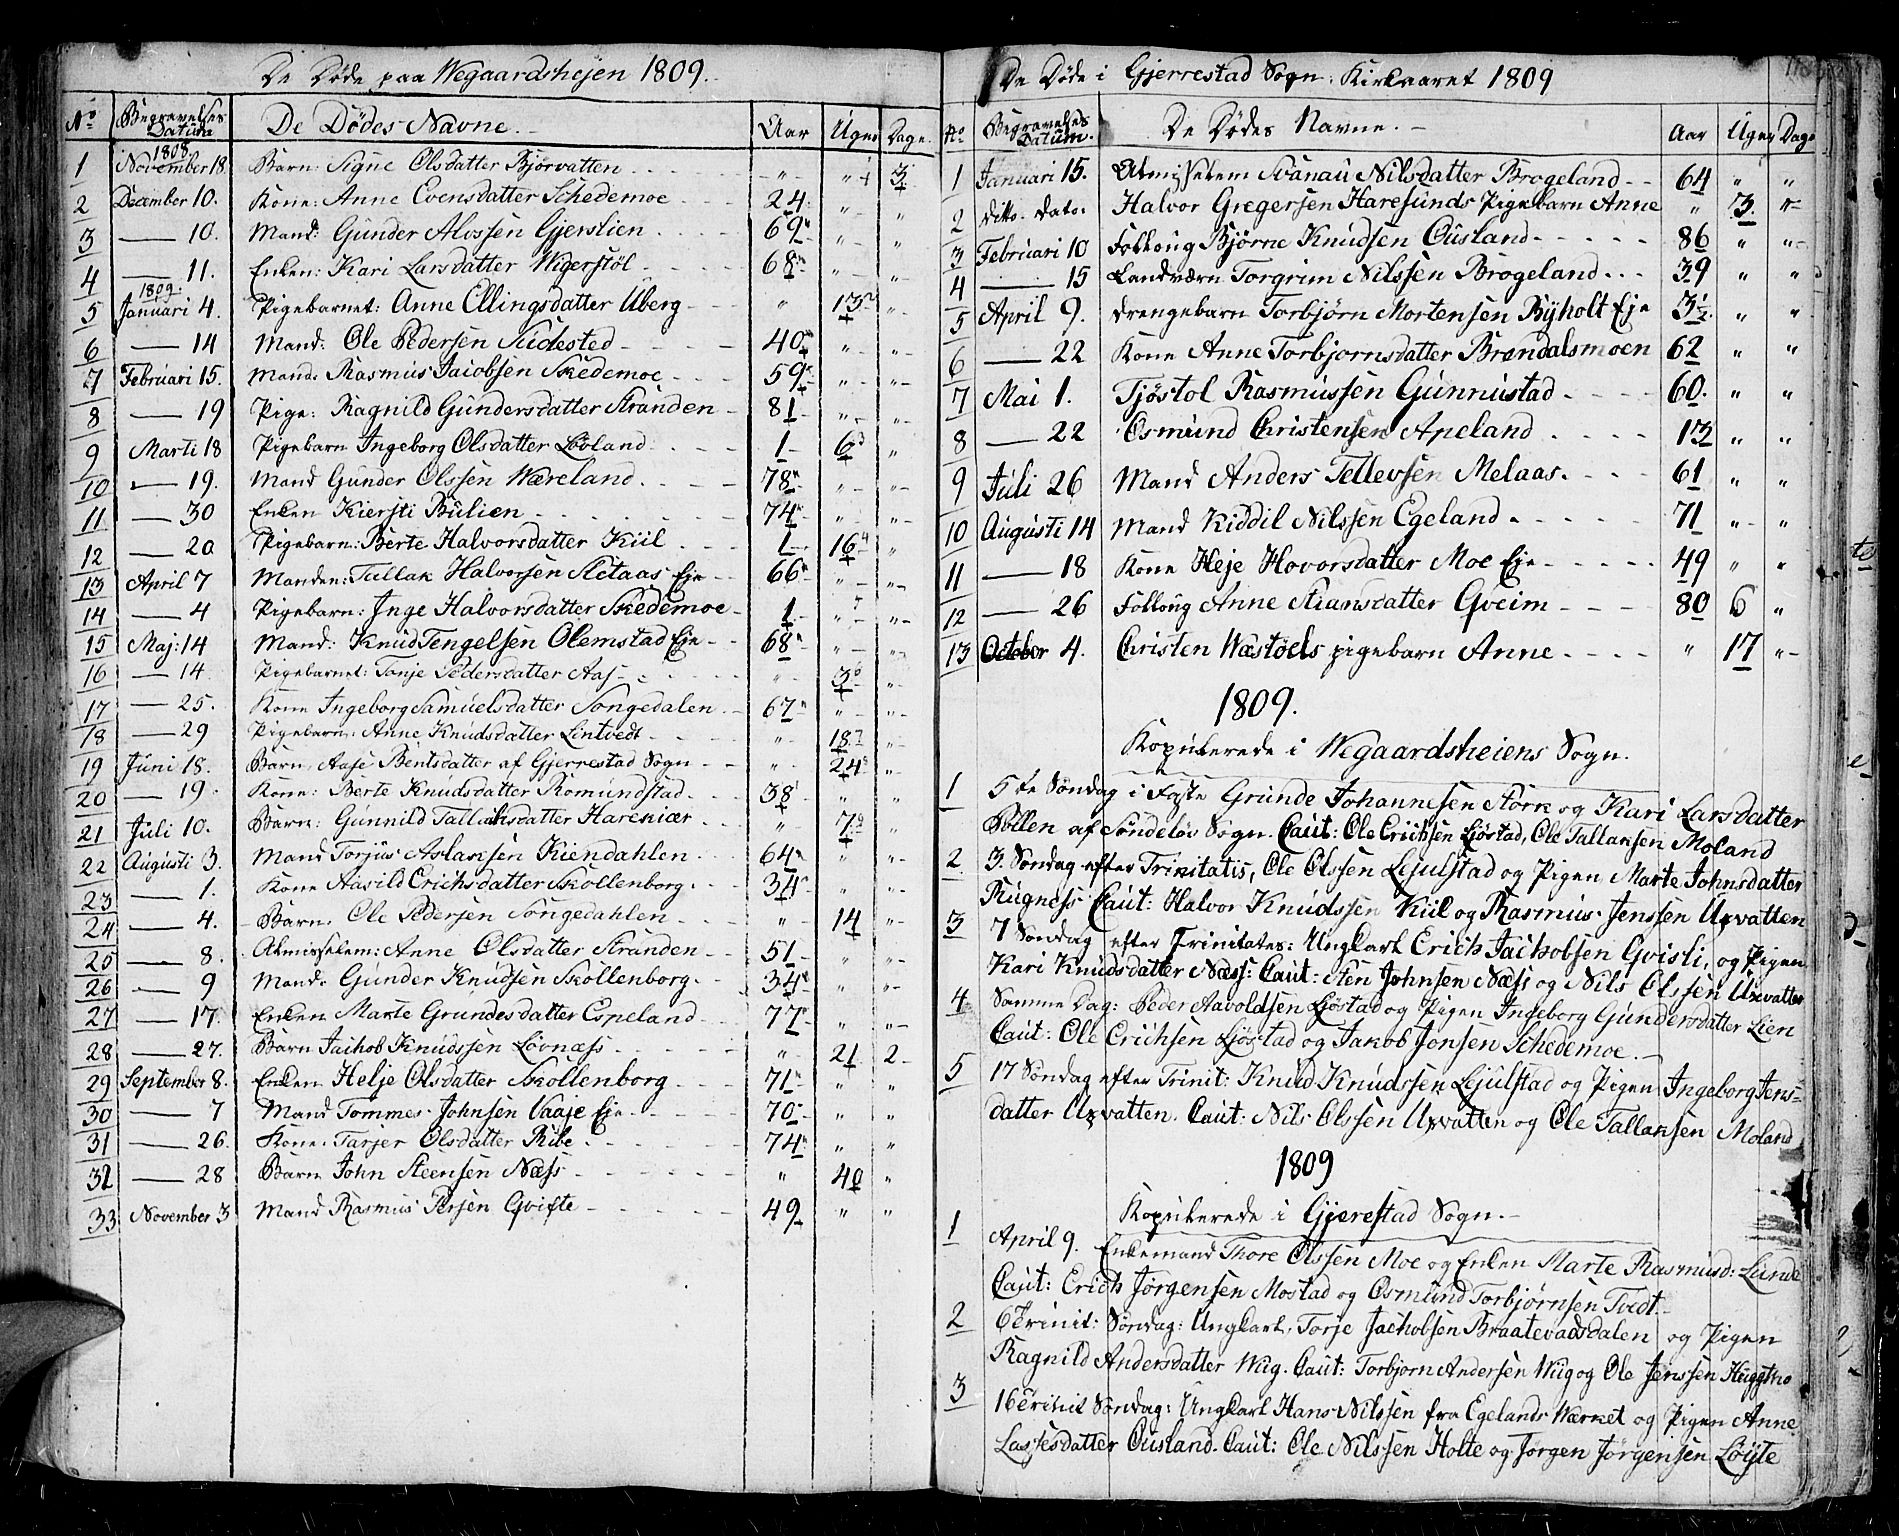 De Døde paa Wegaardshejen 1809.
No Begravelses Datum De Dødes Navne. Aar Uger Dage
1 1808 November 18. Barn: Signe Olsdatter Bjorvatten " " 3
2 December 10. Kone: Anne Evensdatter Schedemoe 24 " "
3 — 10. Mand: Gunder Alossen Gjerslien 69 " "
4 — 11. Enken: Kari Larsdatter Wigerstøl 68 " "
5 1809. Januari 4. Pigebarnet: Anne Ellingsdatter Uberg " 13 "
6 — 14 Mand: Ole Pedersen Südested 40 " "
7 Februari 15. Mand: Rasmus Jacobsen Skedemoe 59 " "
8 — 19 Pige: Ragnild Gundersdatter Stranden 81 " "
9 Marti 18 Pigebarn Ingeborg Olsdatter Løvland 1 6 "
10 — 19. Mand Gunder Olssen Wæreland 78 " "
11 — 30 Enken Kiersti Bulien 74 " "
12 — 20 Pigebarn: Berte Halvorsdatter Kiil 1 16 "
13 April 7 Manden: Tallak Halvorsen Sletaas Eje 66 " "
14 — 4 Pigebarn: Inge Halvorsdatter Skedemoe 1 " "
15 Maj: 14 Mand: Knud Tengelsen Olemstad Eje 68 " "
16 — 14 Pigebarnet: Tonje Pedersdatter Aas " 3 "
17 — 25. Kone Ingeborg Samuelsdatter Songedalen 67 " "
18 — 29 Pigebarn: Anne Knudsdatter Lintvedt " 18 "
19 Juni 18. Barn, Aase Bentsdatter af Gjerrestad Sogn " 24 "
20 — 19. Kone: Berte Knudsdatter Romundstad 38 " "
21 Juli 10. Barn: Gunnild Tallaksdatter Harekiær " 7 "
22 Augusti 3. Mand Torjus Aslaksen Kiendahlen 64 " "
23 — 1. Kone Aasild Erichsdatter Skollenborg 34 " "
24 — 4. Barn. Ole Pedersen Songedahlen " 14 "
25 — 8. Almisselem: Anne Olsdatter Stranden 51 " "
26 — 9 Mand: Gunder Knudsen Skollenborg 34 " "
27 — 17. Enken Marte Grundesdatter Espeland 77 " "
28 — 27. Barn Jachob Knudssen Løvnæss " 21 2
29 September 8. Enken Helje Olsdatter Skollenborg 71 " "
30 — 7 Mand Tommes Johnsen Vaaje Eje 70 " "
31 — 26. Kone: Tarjer Olsdatter Ribe 74 " "
32 — 28 Barn John Steensen Næss " 40 "
33 November 3 Mand Rasmus Persen Gvifte 49 " "
De Døde i Gjerrestad Sogn: Kirkeaaret 1809
No Begravelses Datum. De Dødes Navne. Aar Uger Dage
1 Januari 15. Almisselem Svanau Nilsdatter Brogeland 64 " "
2 ditto Dato. Halvor Gregersen Haresunds Pigebarn Anne " 3. "
3 Februari 10 Follaug Bjørne Knudsen Ousland 86 " "
4 — 15 Landværn Torgrim Nilssen Brogeland 39 " "
5 April 9. Drengebarn Torbjørn Mortensen Ryholt Eje 3½ " "
6 — 22 Kone Anne Torbjornsdatter Brøndalsmoen 62 " "
7 Mai 1. Tjøstol Rasmussen Gunnustad 60. " "
8 — 22 Osmund Christensen Apeland 13 " "
9 Juli 26 Mand Anders Tellevsen Melaas. 61 " "
10 Augusti 14 Mand Kiddil Nilssen Egeland 71 " "
11 — 18 Kone Heje Hovorsdatter Moe Eje 49 " "
12 — 26 Follaug Anne Stiansdatter Gveim 80 6 "
13 October 4. Christen Wæstøels pigebarn Anne " 17 "
1809.
Kopulerede i Wegaardsheiens Sogn.
1 5te Søndag i Faste Grunde Johannesen Stork og Kari Larsdatter
Bøllen af Søndeløv Sogn. Caut: Ole Erichsen Ljøstad, Ole Tallaksen Moland
2 3. Søndag efter Trinitatis, Ole Olssen Lejulstad og Pigen Marte Johnsdatter
Rugness Caut: Halvor Knudssen Kiil og Rasmus Jenssen Uxvatten
3 7 Søndag efter Trinitates: Ungkarl Erich Jachobsen Gvisli, og Pigen
Kari Knudsdatter Næss: Caut: Sten Johnsen Næss og Nils Olssen Uxvatten
4 Samme Dag: Peder Aavoldsen Ljøstad og Pigen Ingeborg Gundersdatter Lien
Caut: Ole Erichsen Ljøstad og Jakob Jonsen Schedemoe.
5 17 Søndag efter Trinit: Knud Knudssen Lejulstad og Pigen Ingeborg Jens-
datter Uxvatten. Caut: Nils Olssen Uxvatten og Ole Tallaksen Moland
1809
Kopulerede i Gjerestad Sogn.
1 April 9. Enkemand Thore Olssen Moe og Enken Marte Rasmusd: Lunde
Caut: Erich Jørgensen Mostad og Osmund Torbjørnsen Tvedt.
2 6 Trinit: Søndag: Ungkarl, Torje Jachobsen Braatevadsdalen og Pigen
Ragnild Andersdatter Wiig. Caut: Torbjorn Andersen Wiig og Ole Jenssen
3 16 Trinit Søndag: Ungkarl Hans Nilssen fra Egelands Wærket og Pigen Anne
Lassesdatter Ousland. Caut: Ole Nilssen Holte og Jørgen Jørgensen Løyte